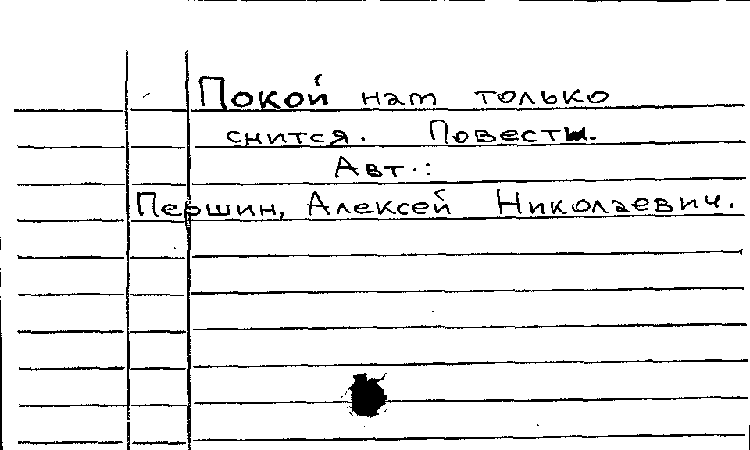 Покой нам только
снится. Повесть.
Авт.:
Першин, Алексей Николаевич.